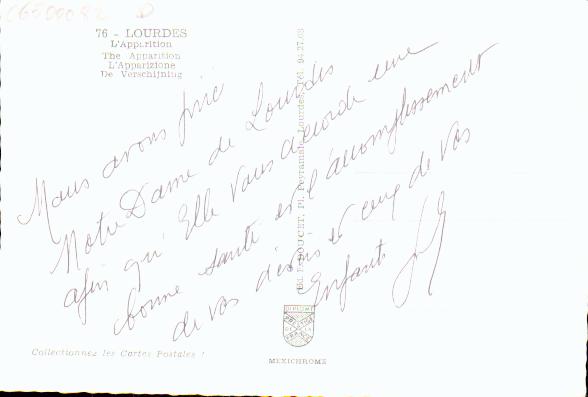 CG500082
76 - LOURDES
L'Apparition
The Apparition
L'Apparizione
De Verschijning
Nous avons prié
Notre Dame de Lourdes
afin qu'Elle vous accorde une
bonne santé et l'accomplissement
de vos désirs et ceux de vos
Enfants
Ed. F. DOUCET, Pl. Peyramale, Lourdes, Tél. 94.27.03
DIPLOME
FRANCE
Collectionnez les Cartes Postales !
MEXICHROME